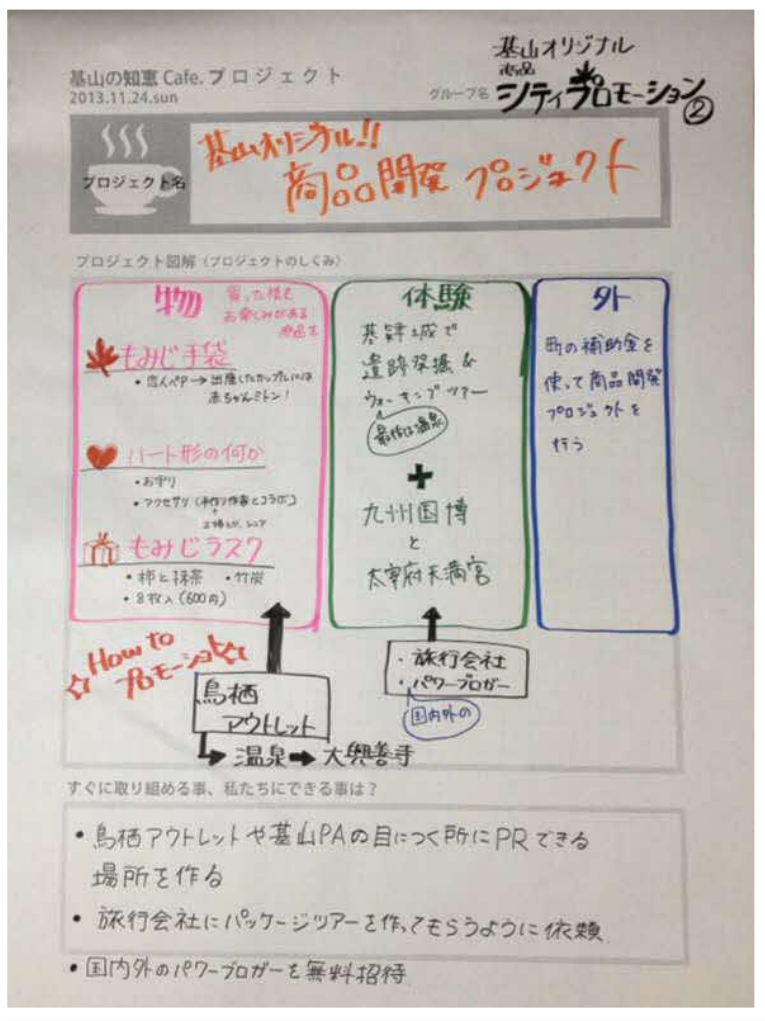 基山の知恵 Cafe. プロジェクト
2013.11.24.sun
グループ名
基山オリジナル
商品
シティプロモーション
②
プロジェクト名
基山オリジナル!!
商品開発 プロジェクト
プロジェクト図解（プロジェクトのしくみ）
物
買った後も
お楽しみがある!
商品を
もみじ手袋
・恋人ペア→出産したカップルには
赤ちゃんミトン!
ハート形の何か
・お守り
・アクセサリ（手作り作家とコラボ）
もみじラスク
・柿と抹茶 ・竹炭
・8枚入(600円)
体験
基肄城で
遺跡発掘&
ウォーキングツアー
最後は温泉
+
九州国博
と
太宰府天満宮
外
町の補助金を
使って商品開発
プロジェクトを
行う
☆How to
プロモーション☆
鳥栖
アウトレット
→温泉→大興善寺
・旅行会社
・パワーブロガー
国内外の
すぐに取り組める事、私たちにできる事は？
・鳥栖アウトレットや基山PAの目につく所にPRできる
場所を作る
・旅行会社にパッケージツアーを作ってもらうように依頼
・国内外のパワーブロガーを無料招待